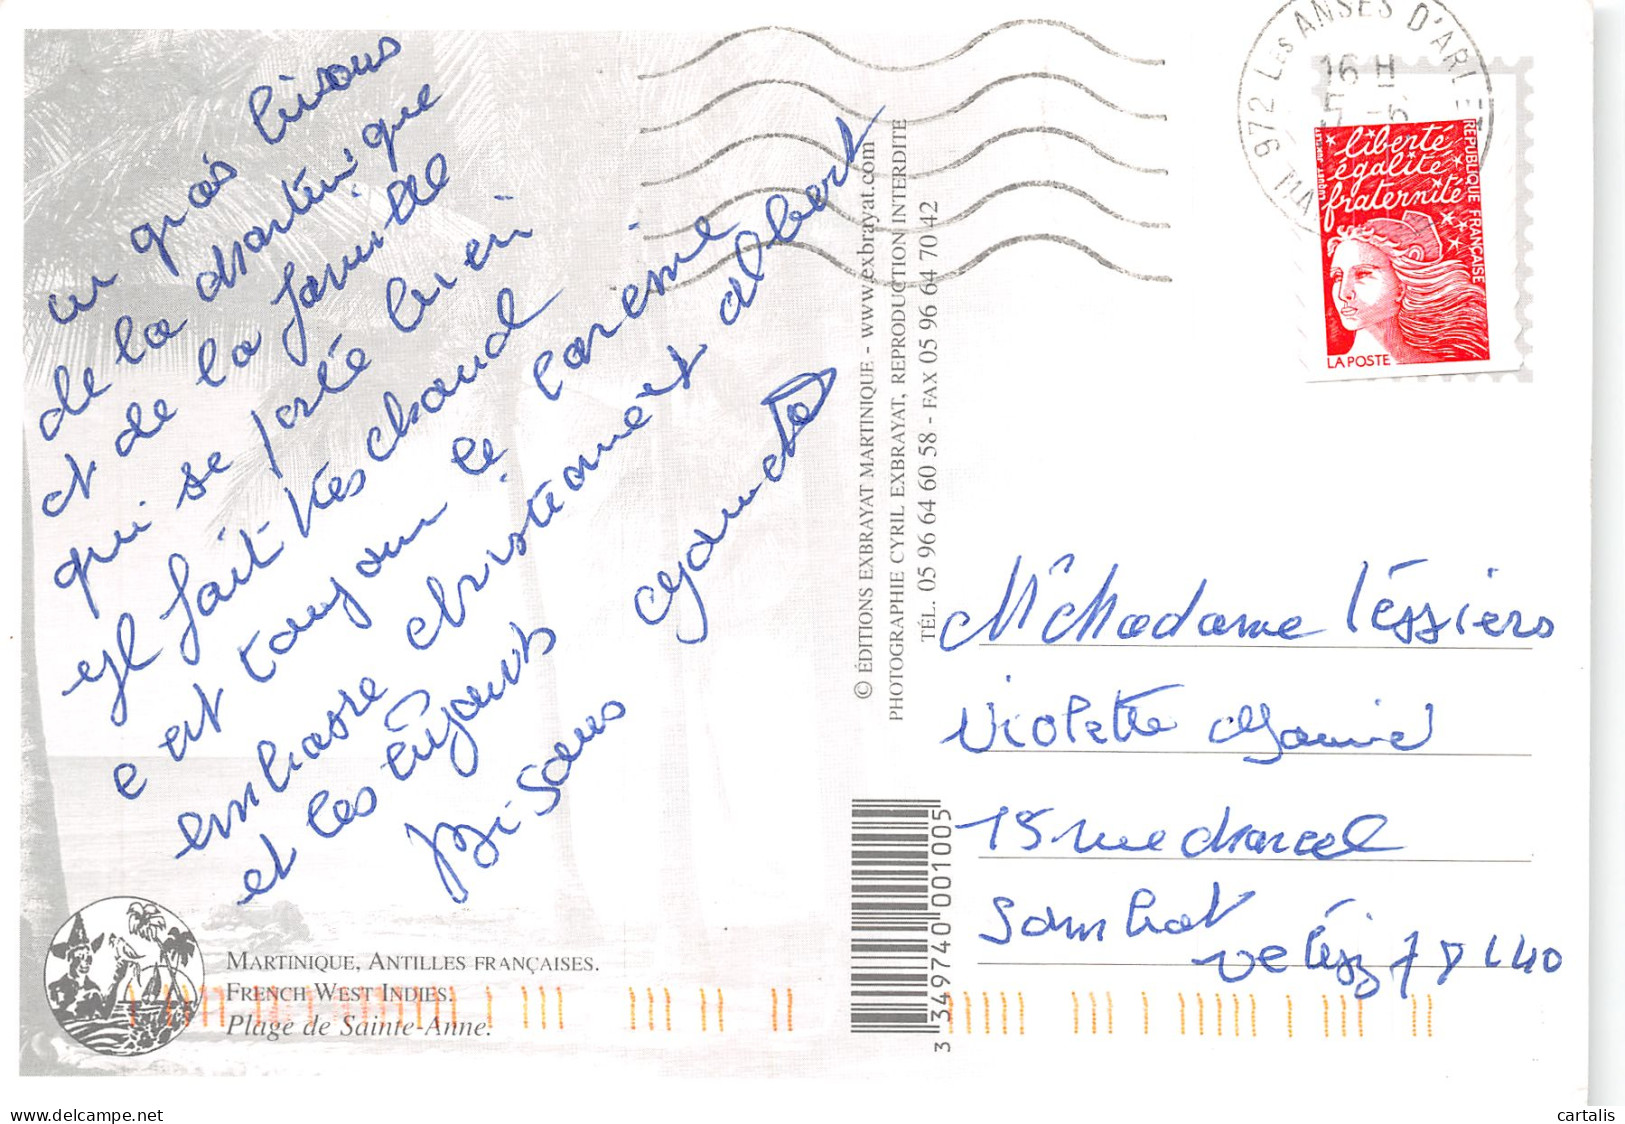 un gros bisous
de la Martinique
et de la famille
qui se porte bien
il fait très chaud
c est toujour le careme
embrasse christeomet albert
et les enfants
Bisous
972 LES ANSES D'ARLET
MA
16 H
5 -6
liberté
égalité
fraternité
RÉPUBLIQUE FRANÇAISE
LA POSTE
© ÉDITIONS EXBRAYAT MARTINIQUE - www.exbrayat.com
PHOTOGRAPHIE CYRIL EXBRAYAT, REPRODUCTION INTERDITE
TÉL. 05 96 64 60 58 - FAX 05 96 64 70 42
Mr Madame Téssiers
Violette
15 rue Marcel
Sambat
Velizy 78140
3 349740 001005
MARTINIQUE, ANTILLES FRANÇAISES.
FRENCH WEST INDIES.
Plage de Sainte-Anne.
delcampe.net
cartalis